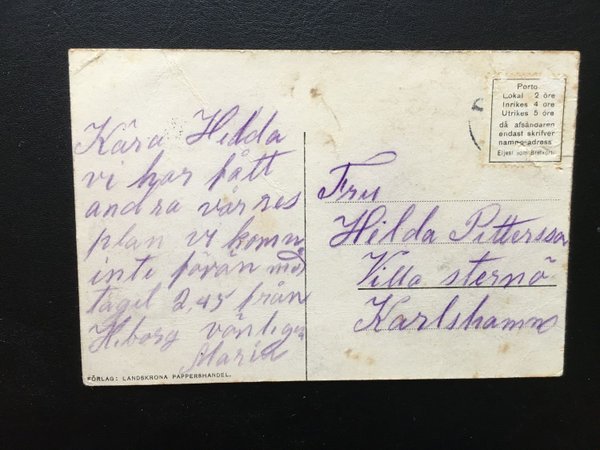 Kära Hilda
vi har fått
andra vår res
plan vi komn
inte förän med
tåget 2,45 från
H.borg vänligen
Maria
FÖRLAG: LANDSKRONA PAPPERSHANDEL.
Porto
Lokal 2 öre
Inrikes 4 öre
Utrikes 5 öre
då afsändaren
endast skrifver
namn o. adress
Eljest som Brefkort
Fru
Hilda Pettersson
Villa sternö
Karlshamn